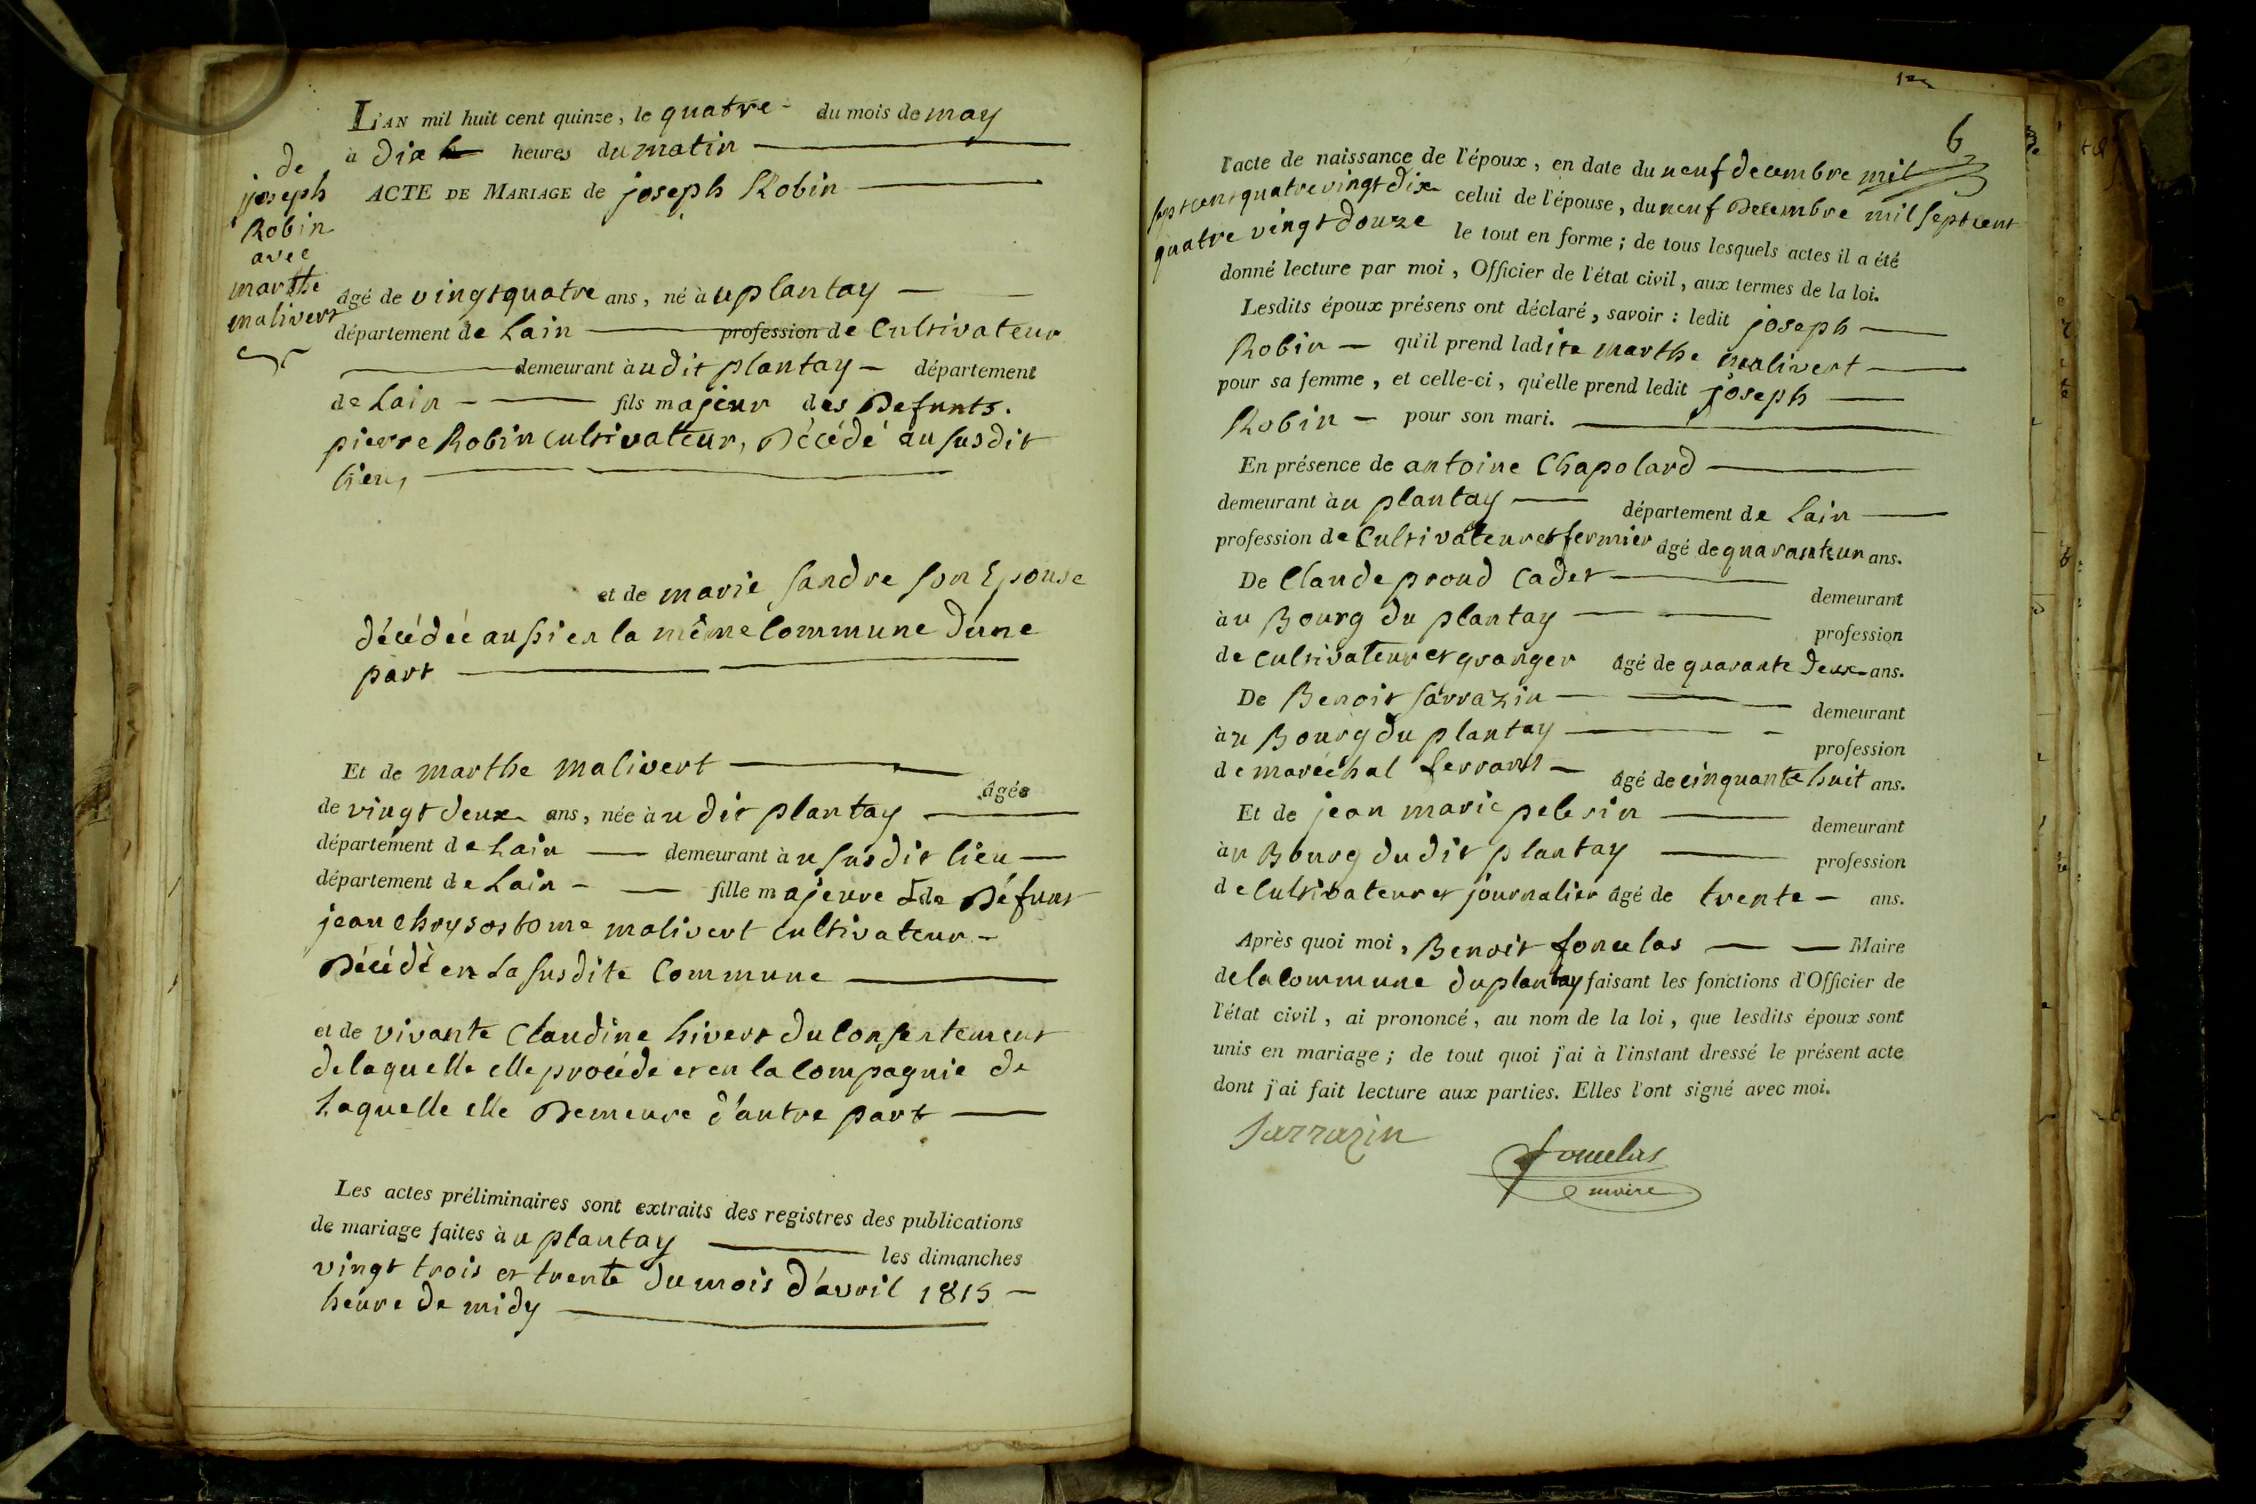 L'AN mil huit cent quinze, le quatre du mois de may
à dix heures du matin
ACTE DE MARIAGE de joseph Robin
de
joseph
Robin
avec
marthe
malivert
âgé de vingt quatre ans, né à u plantay
département de Lain profession de Cultivateur
demeurant à u dit plantay département
de Lain fils majeur des Defunts.
pierre Robin cultivateur, Décédé au susdit
lieu,
et de marie Sandre son Epouse
décédée aussi en la même Commune d'une
part
Et de marthe malivert âgée
de vingt deux ans, née à u dit plantay
département de Lain demeurant à u susdit lieu
département de Lain fille majeure de Défunt
jean Chrysostome malivert cultivateur
Décédé en La susdite Commune
et de vivante Claudine hivert du Consentement
de laquelle elle procéde et en la Compagnie de
Laquelle elle Demeure d'autre part
Les actes préliminaires sont extraits des registres des publications
de mariage faites à u plantay les dimanches
vingt trois et trente du mois d'avril 1815
heure de midy
6
l'acte de naissance de l'époux, en date du neuf decembre mil
sept cent quatre vingt dix celui de l'épouse, du neuf Decembre mil sept cent
quatre vingt douze le tout en forme; de tous lesquels actes il a été
donné lecture par moi, Officier de l'état civil, aux termes de la loi.
Lesdits époux présens ont déclaré, savoir: ledit joseph
Robin qu'il prend ladite marthe malivert
pour sa femme, et celle-ci, qu'elle prend ledit joseph
Robin pour son mari.
En présence de antoine Chapolard
demeurant à u plantay département de Lain
profession de Cultivateur et fermier âgé de quarante un ans.
De Claude proud Cadet demeurant
à u Bourg du plantay profession
de cultivateur et granger âgé de quarante deux ans.
De Benoit Sarrazin demeurant
à u Bourg du plantay profession
de maréchal ferrant âgé de cinquante huit ans.
Et de jean marie pelerin demeurant
à u Bourg du dit plantay profession
de Cultivateur et journalier âgé de trente ans.
Après quoi moi, Benoit fonulas Maire
de la Commune du plantay faisant les fonctions d'Officier de
l'état civil, ai prononcé, au nom de la loi, que lesdits époux sont
unis en mariage; de tout quoi j'ai à l'instant dressé le présent acte
dont j'ai fait lecture aux parties. Elles l'ont signé avec moi.
Sarrazin
fonulas
maire